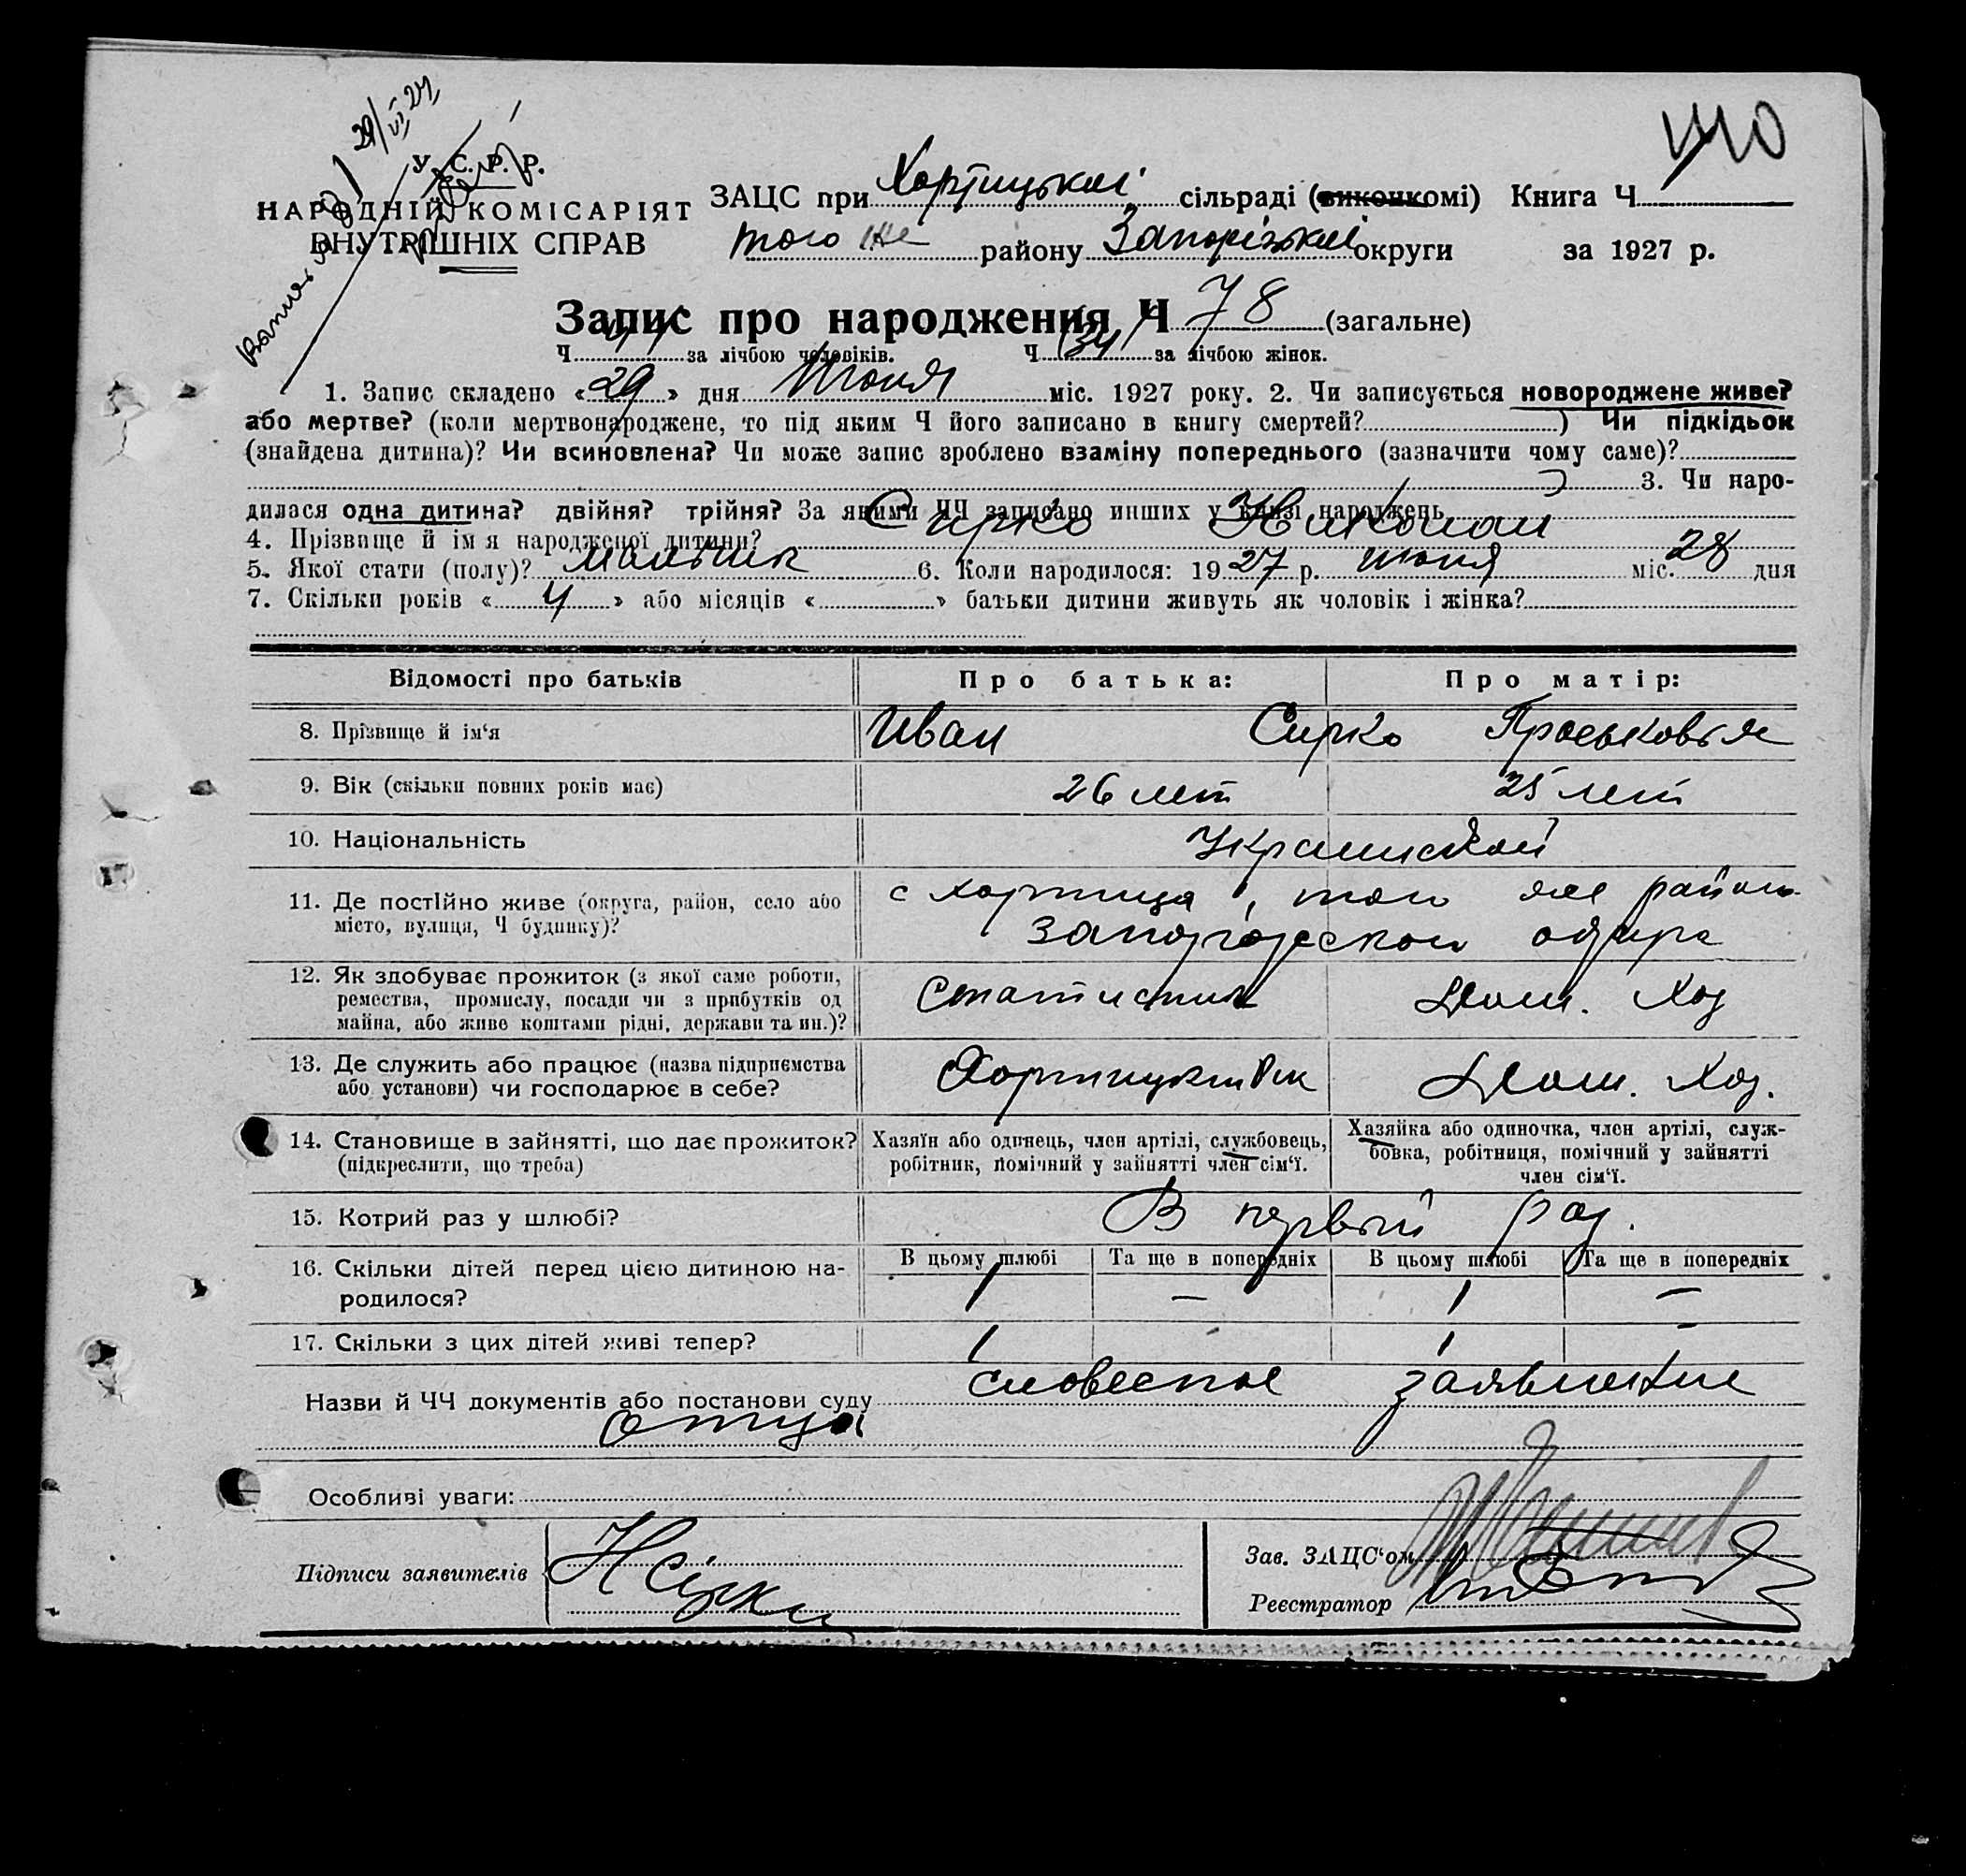 29/VI 27
У. С. Р. Р.
НАРОДНІЙ КОМІСАРІЯТ
ВНУТРІШНІХ СПРАВ
ЗАЦС при Хортицькій сільраді (виконкомі) Книга Ч
того же району Запорізької округи за 1927 р.
Запис про народження Ч 78 (загальне)
Ч 44 за лічбою чоловіків. Ч (34) за лічбою жінок.
1. Запис складено «29» дня Июня міс. 1927 року. 2. Чи записується новороджене живе?
або мертве? (коли мертвонароджене, то під яким Ч його записано в книгу смертей? ) Чи підкідьок
(знайдена дитина)? Чи всиновлена? Чи може запис зроблено взаміну попереднього (зазначити чому саме)?
) 3. Чи наро-
дилася одна дитина? двійня? трійня? За якими ЧЧ записано инших у книзі народжень
4. Прізвище й імя народженої дитини? Сирко Николай
5. Якої стати (полу)? мальчик 6. Коли народилося: 1927 р. июня міс. 28 дня
7. Скільки років «4» або місяців « » батьки дитини живуть як чоловік і жінка?
Відомості про батьків Про батька: Про матір:
8. Прізвище й ім‘я Иван Сирко Проськовья
9. Вік (скільки повних років має) 26 лет 25 лет
10. Національність Украинской
11. Де постійно живе (округа, район, село або
місто, вулиця, Ч будинку)?
с Хортица, того же района
Запорожского округа
12. Як здобуває прожиток (з якої саме роботи,
ремества, промислу, посади чи з прибутків од
майна, або живе коштами рідні, держави та ин.)?
Статистик Дом. Хоз
13. Де служить або працює (назва підприємства
або установи) чи господарює в себе?
Хортицкий Рик Дом. Хоз.
14. Становище в зайнятті, що дає прожиток?
(підкреслити, що треба)
Хазяїн або одинець, член артілі, службовець,
робітник, помічний у зайнятті член сім‘ї.
Хазяйка або одиночка, член артілі, служ-
бовка, робітниця, помічний у зайнятті
член сім‘ї.
15. Котрий раз у шлюбі? В первый раз.
16. Скільки дітей перед цією дитиною на-
родилося?
В цьому шлюбі Та ще в попередніх В цьому шлюбі Та ще в попередніх
1 — 1 —
17. Скільки з цих дітей живі тепер? 1 - 1 -
Назви й ЧЧ документів або постанови суду словесное заявление
отца
Особливі уваги:
Підписи заявителів Н Сірки
Зав. ЗАЦС‘ом
Реєстратор